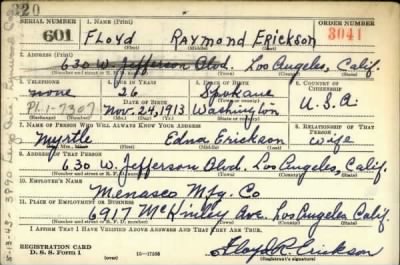 220
SERIAL NUMBER
1. NAME (Print)
ORDER NUMBER
601
FLOYD RAYMOND ERICKSON
3041
(First) (Middle) (Last)
2. ADDRESS (Print)
630 W. Jefferson Blvd. Los Angeles, Calif.
(Number and street or R. F. D. number) (Town) (County) (State)
3. TELEPHONE
4. AGE IN YEARS
5. PLACE OF BIRTH
6. COUNTRY OF CITIZENSHIP
none
26
Spokane
Pl. 1-7307
DATE OF BIRTH
Nov. 24, 1913
Washington
U.S.A.
7. NAME OF PERSON WHO WILL ALWAYS KNOW YOUR ADDRESS
8. RELATIONSHIP OF THAT PERSON
Myrtle Edna Erickson Wife
9. ADDRESS OF THAT PERSON
630 W. Jefferson Blvd. Los Angeles, Calif.
(Number and street or R. F. D. number) (Town) (County) (State)
10. EMPLOYER'S NAME
Menasco Mfg. Co
11. PLACE OF EMPLOYMENT OR BUSINESS
6917 McKinley Ave. Los Angeles Calif.
(Number and street or R. F. D. number) (Town) (County) (State)
I AFFIRM THAT I HAVE VERIFIED ABOVE ANSWERS AND THAT THEY ARE TRUE.
REGISTRATION CARD
D. S. S. Form 1
Floyd R. Erickson
(Registrant's signature)
5-13-43